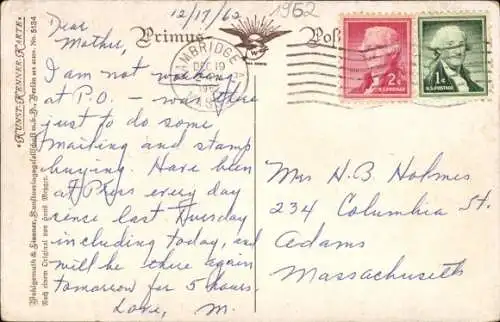 12/17/62
1962
Dear
Mother,
Primus
CAMBRIDGE
DEC 19
MASS.
2¢
U.S. POSTAGE
1¢
U.S. POSTAGE
I am not working
at P.O. – was there
just to do some
mailing and stamp
buying. Have been
at Press every day
since last Tuesday
including today, and
will be there again
tomorrow for 5 hours.
Love, M.
Mrs H. B. Holmes
234 Columbia St.
Adams
Massachusetts
"KUNST-KENNER-KARTE" No. 5134
Wohlgemuth & Lissner, Kunstverlagsgesellschaft m.b.H. Berlin
Nach einem Original von